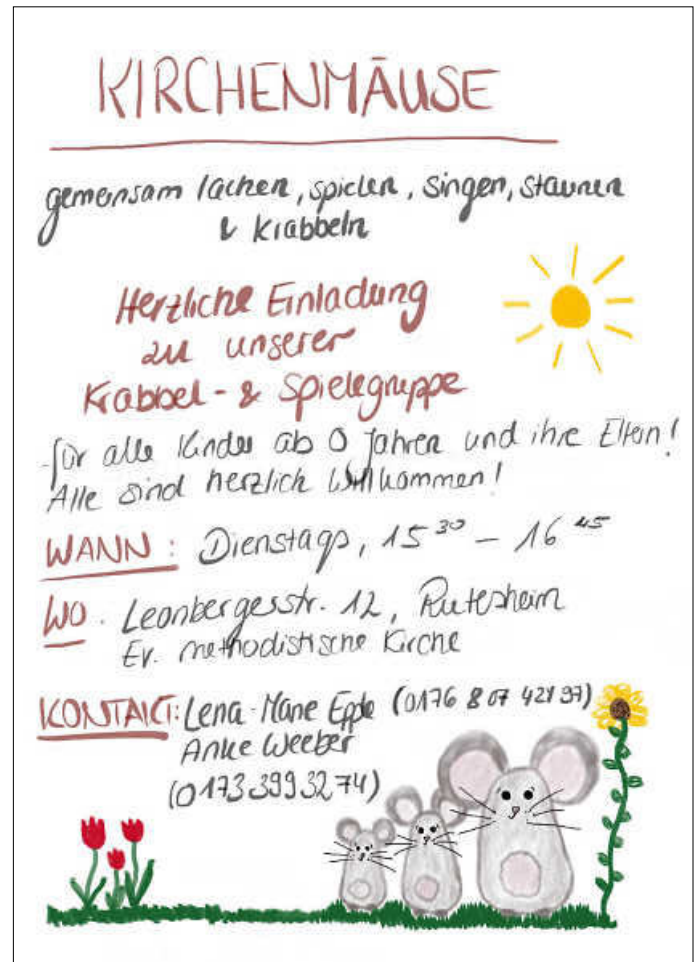 KIRCHENMÄUSE
gemeinsam lachen, spielen, singen, staunen
& krabbeln
Herzliche Einladung
zu unserer
Krabbel- & Spielegruppe
für alle Kinder ab 0 Jahren und ihre Eltern!
Alle sind herzlich Willkommen!
WANN: Dienstags, 15 30 - 16 45
WO. Leonbergerstr. 12, Rutesheim
Ev. methodistische Kirche
KONTAKT: Lena-Marie Epple (0176 8 07 421 97)
Anke Weeber
(0173 399 32 74)